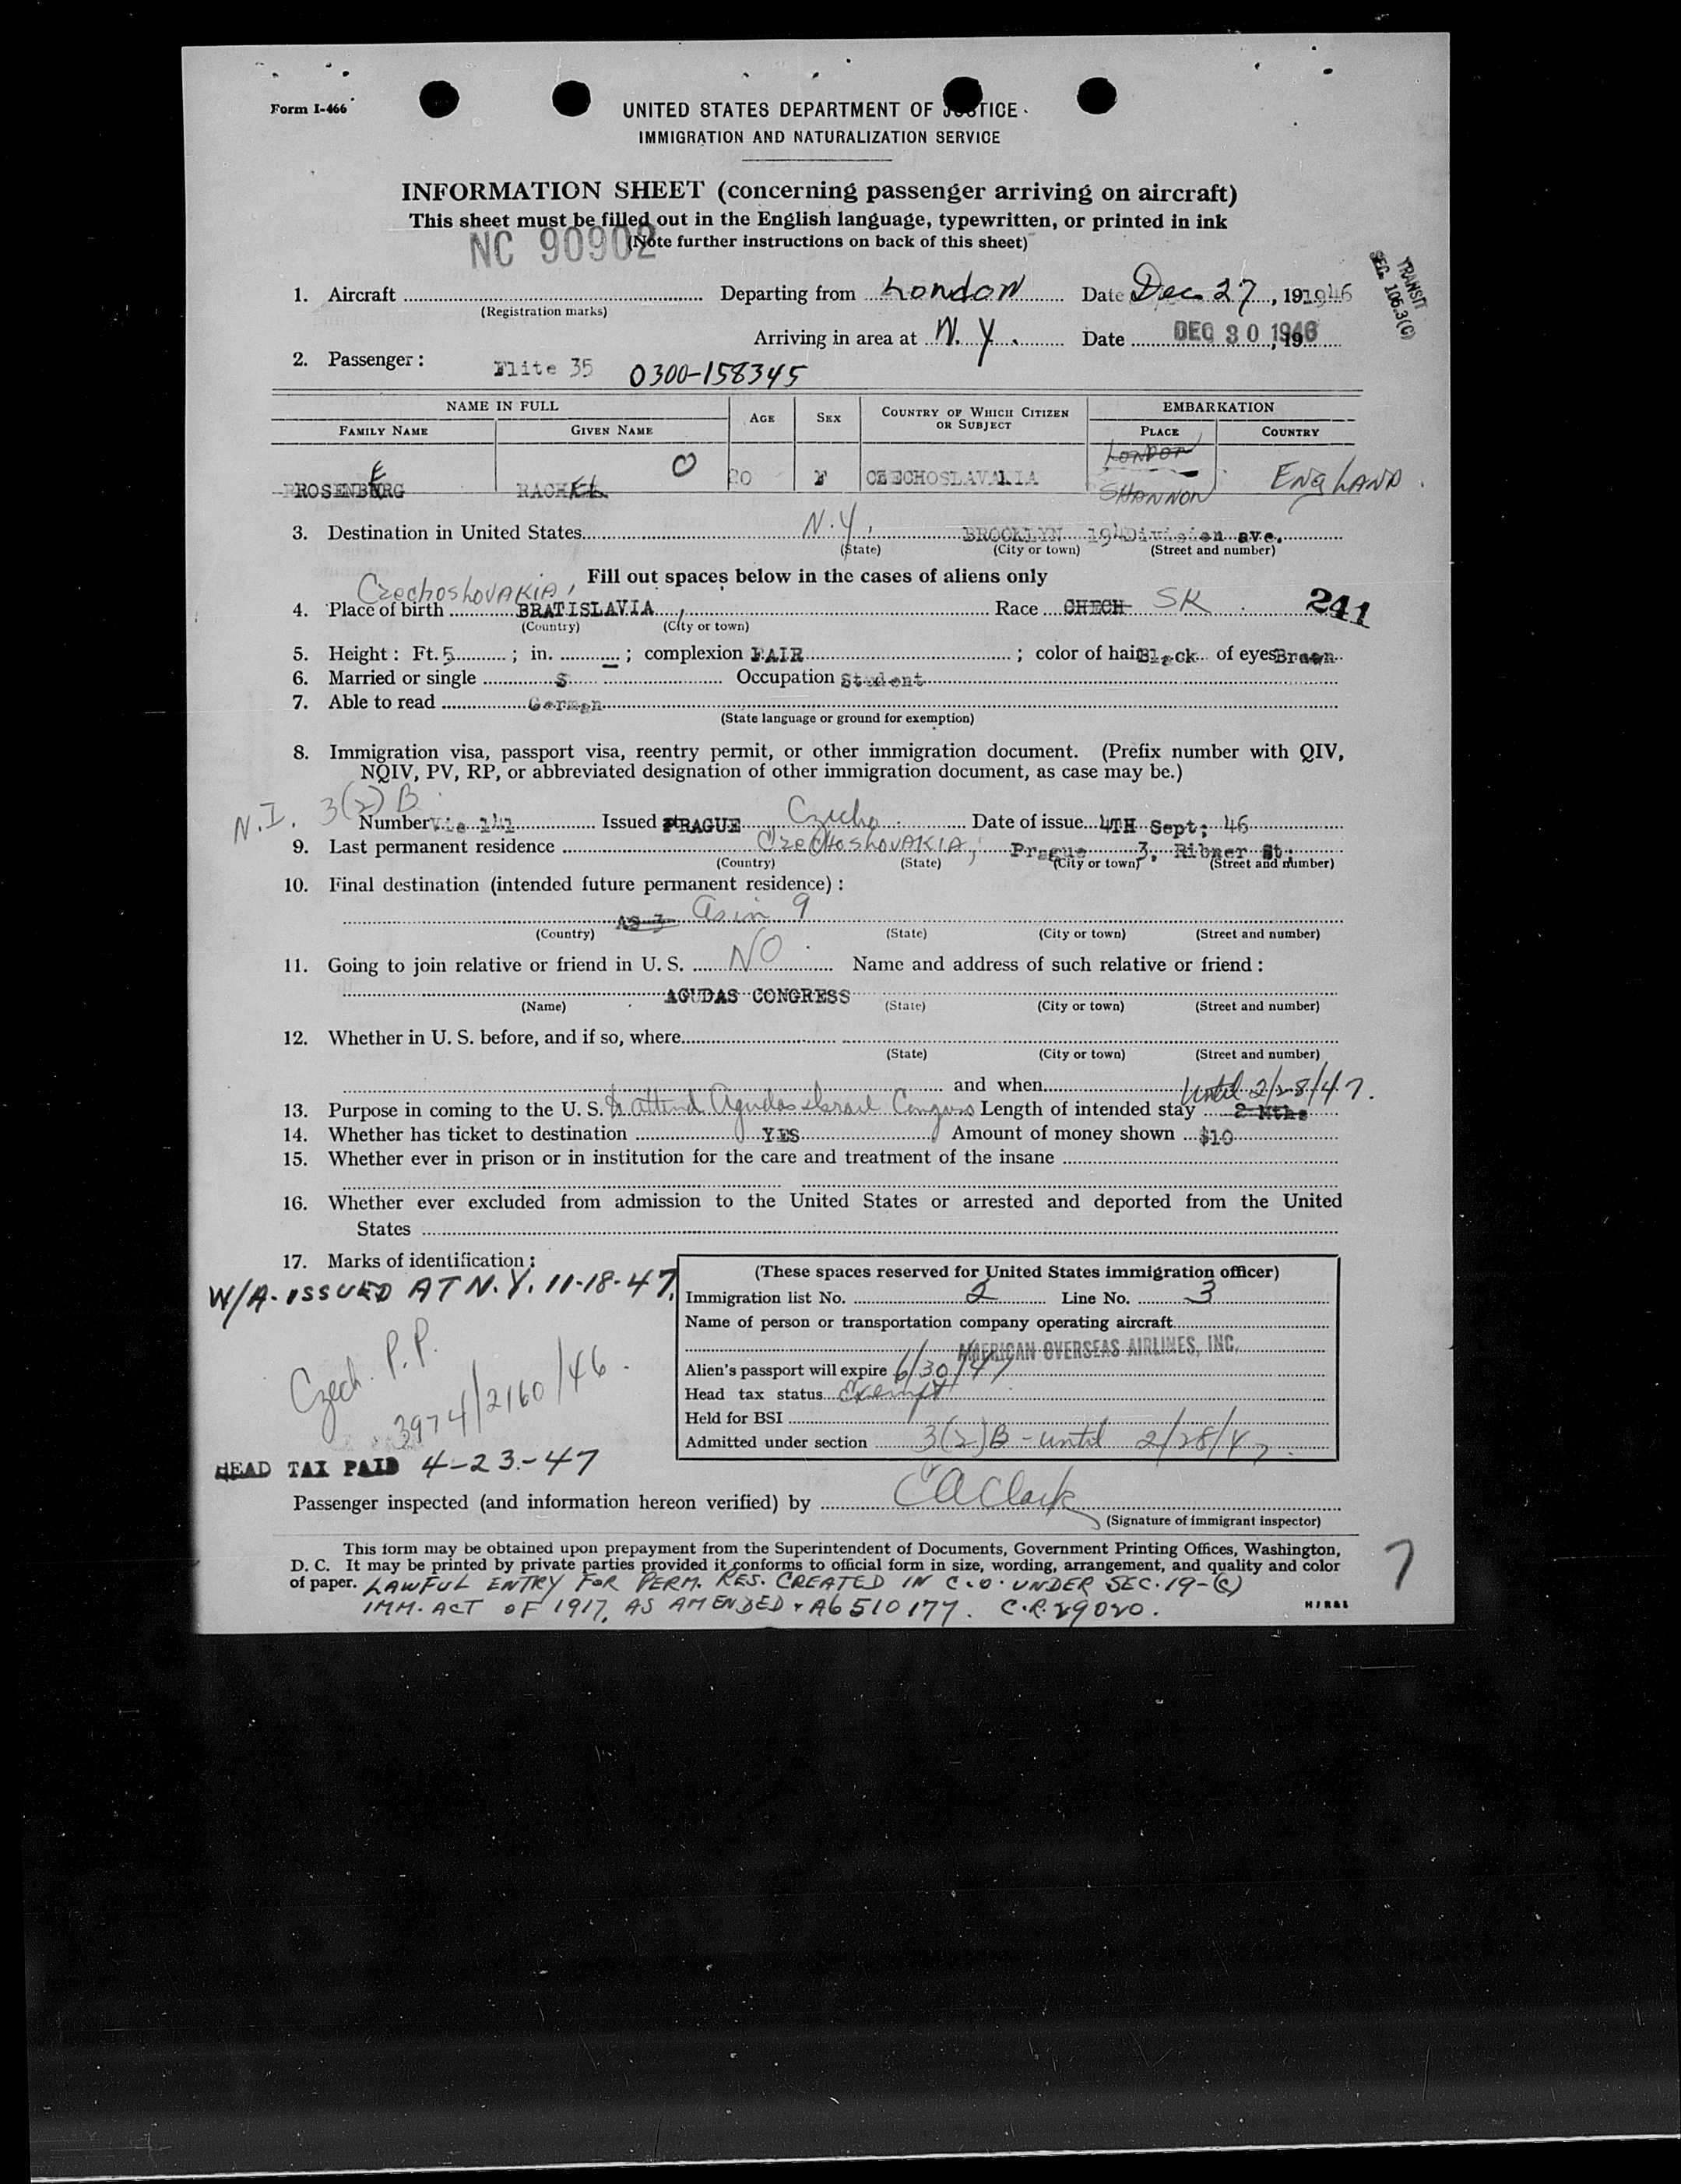 Form I-466
UNITED STATES DEPARTMENT OF JUSTICE
IMMIGRATION AND NATURALIZATION SERVICE
INFORMATION SHEET (concerning passenger arriving on aircraft)
This sheet must be filled out in the English language, typewritten, or printed in ink
(Note further instructions on back of this sheet)
NC 90902
TRANSIT
SEC. 106.3(C)
1. Aircraft Departing from London Date Dec 27, 19 1946
(Registration marks)
Arriving in area at N.Y. Date DEC 30 1946, 19
2. Passenger: Flite 35 0300-158345
NAME IN FULL AGE SEX COUNTRY OF WHICH CITIZEN OR SUBJECT EMBARKATION
FAMILY NAME GIVEN NAME PLACE COUNTRY
LONDON
ROSENBERG RACHEL 0 20 F CZECHOSLAVAKIA SHANNON ENGLAND.
3. Destination in United States N.Y. BROOKLYN 194 Division ave.
(State) (City or town) (Street and number)
Fill out spaces below in the cases of aliens only
CzechosLOVAKIA,
4. Place of birth BRATISLAVIA, Race CHECH SK 241
(Country) (City or town)
5. Height: Ft. 5 ; in. – ; complexion FAIR ; color of hair Black of eyes Brown
6. Married or single S Occupation Student
7. Able to read German
(State language or ground for exemption)
8. Immigration visa, passport visa, reentry permit, or other immigration document. (Prefix number with QIV,
NQIV, PV, RP, or abbreviated designation of other immigration document, as case may be.)
N.I. 3(2)B
Number Vis 141 Issued at PRAGUE Czecho. Date of issue 4TH Sept; 46
9. Last permanent residence CzechosLOVAKIA, Prague 3, Ribner St;
(Country) (State) (City or town) (Street and number)
10. Final destination (intended future permanent residence):
AS 3 As in 9
(Country) (State) (City or town) (Street and number)
11. Going to join relative or friend in U. S. NO. Name and address of such relative or friend:
AGUDAS CONGRESS
(Name) (State) (City or town) (Street and number)
12. Whether in U. S. before, and if so, where
(State) (City or town) (Street and number)
and when
Until 2/28/47.
13. Purpose in coming to the U. S. to attend Agudas Israel Congress Length of intended stay 2 Mths
14. Whether has ticket to destination YES Amount of money shown $10
15. Whether ever in prison or in institution for the care and treatment of the insane
16. Whether ever excluded from admission to the United States or arrested and deported from the United
States
17. Marks of identification:
W/A. ISSUED AT N.Y. 11-18-47.
Czech. P.P.
3974/2160/46.
HEAD TAX PAID 4-23-47
(These spaces reserved for United States immigration officer)
Immigration list No. 2 Line No. 3
Name of person or transportation company operating aircraft
AMERICAN OVERSEAS AIRLINES, INC.
Alien's passport will expire 6/30/47
Head tax status Exempt
Held for BSI
Admitted under section 3(2)B - until 2/28/47.
Passenger inspected (and information hereon verified) by C A Clark
(Signature of immigrant inspector)
This form may be obtained upon prepayment from the Superintendent of Documents, Government Printing Offices, Washington,
D. C. It may be printed by private parties provided it conforms to official form in size, wording, arrangement, and quality and color
of paper. LAWFUL ENTRY FOR PERM. RES. CREATED IN C.O. UNDER SEC. 19-(c)
IMM. ACT OF 1917, AS AMENDED. A6510177. C.R. 29020.
7